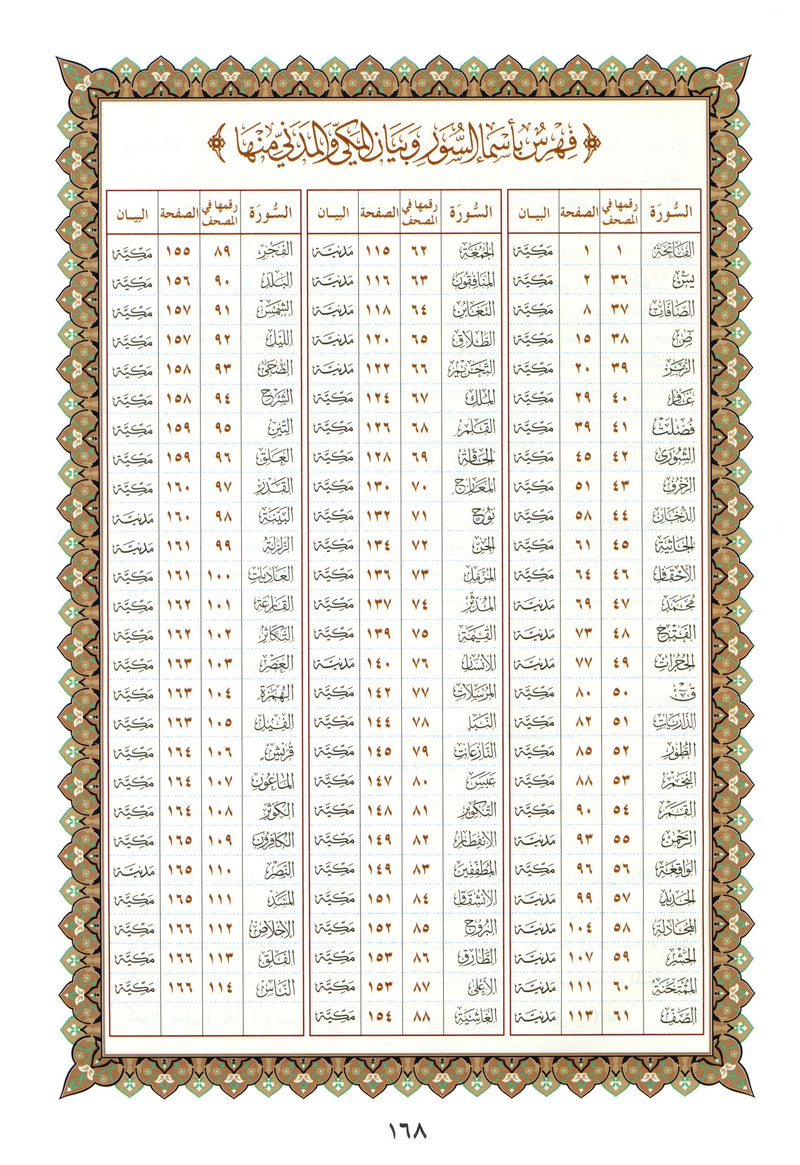 فِهْرِسٌ بِأَسْمَاءِ السُّوَرِ وَبَيَانِ المَكِّيِّ وَالمَدَنِيِّ مِنْهَا
السُّورَة رقمها في المصحف الصفحة البيان
الفَاتِحَة ١ ١ مَكِّيَّة
يسٓ ٣٦ ٢ مَكِّيَّة
الصَّافَات ٣٧ ٨ مَكِّيَّة
صٓ ٣٨ ١٥ مَكِّيَّة
الزُّمَر ٣٩ ٢٠ مَكِّيَّة
غَافِر ٤٠ ٢٩ مَكِّيَّة
فُصِّلَت ٤١ ٣٩ مَكِّيَّة
الشُّورى ٤٢ ٤٥ مَكِّيَّة
الزّخْرُف ٤٣ ٥١ مَكِّيَّة
الدّخَان ٤٤ ٥٨ مَكِّيَّة
الجَاثِيَة ٤٥ ٦١ مَكِّيَّة
الأحْقاف ٤٦ ٦٤ مَكِّيَّة
مُحَمّد ٤٧ ٦٩ مَدنيّة
الفَتْح ٤٨ ٧٣ مَدنيّة
الحُجُرات ٤٩ ٧٧ مَدنيّة
قٓ ٥٠ ٨٠ مَكِّيَّة
الذّاريَات ٥١ ٨٢ مَكِّيَّة
الطُّور ٥٢ ٨٥ مَكِّيَّة
النّجْم ٥٣ ٨٨ مَكِّيَّة
القَمَر ٥٤ ٩٠ مَكِّيَّة
الرَّحمٰن ٥٥ ٩٣ مَدنيّة
الواقِعَة ٥٦ ٩٦ مَكِّيَّة
الحَديد ٥٧ ٩٩ مَدنيّة
المجَادلة ٥٨ ١٠٤ مَدنيّة
الحَشْر ٥٩ ١٠٧ مَدنيّة
المُمتَحنَة ٦٠ ١١١ مَدنيّة
الصَّف ٦١ ١١٣ مَدنيّة
السُّورَة رقمها في المصحف الصفحة البيان
الجُمُعَة ٦٢ ١١٥ مَدنيّة
المنَافِقون ٦٣ ١١٦ مَدنيّة
التغَابُن ٦٤ ١١٨ مَدنيّة
الطّلَاق ٦٥ ١٢٠ مَدنيّة
التّحْريْم ٦٦ ١٢٢ مَدنيّة
المُلْك ٦٧ ١٢٤ مَكِّيَّة
القَلَم ٦٨ ١٢٦ مَكِّيَّة
الحَاقّة ٦٩ ١٢٨ مَكِّيَّة
المعَارِج ٧٠ ١٣٠ مَكِّيَّة
نُوح ٧١ ١٣٢ مَكِّيَّة
الجِن ٧٢ ١٣٤ مَكِّيَّة
المزّمّل ٧٣ ١٣٦ مَكِّيَّة
المُدَّثِّر ٧٤ ١٣٧ مَكِّيَّة
القِيَامَة ٧٥ ١٣٩ مَكِّيَّة
الإنْسَان ٧٦ ١٤٠ مَدنيّة
المُرسَلات ٧٧ ١٤٢ مَكِّيَّة
النّبَأ ٧٨ ١٤٤ مَكِّيَّة
النّازعَات ٧٩ ١٤٥ مَكِّيَّة
عَبَسَ ٨٠ ١٤٧ مَكِّيَّة
التّكوير ٨١ ١٤٨ مَكِّيَّة
الانفِطار ٨٢ ١٤٩ مَكِّيَّة
المطفّفِين ٨٣ ١٤٩ مَكِّيَّة
الانْشقاق ٨٤ ١٥١ مَكِّيَّة
البُرُوج ٨٥ ١٥٢ مَكِّيَّة
الطّارق ٨٦ ١٥٣ مَكِّيَّة
الأعْلى ٨٧ ١٥٣ مَكِّيَّة
الغَاشيَة ٨٨ ١٥٤ مَكِّيَّة
السُّورَة رقمها في المصحف الصفحة البيان
الفَجْر ٨٩ ١٥٥ مَكِّيَّة
البَلَد ٩٠ ١٥٦ مَكِّيَّة
الشّمْس ٩١ ١٥٧ مَكِّيَّة
الليْل ٩٢ ١٥٧ مَكِّيَّة
الضّحَى ٩٣ ١٥٨ مَكِّيَّة
الشّرْح ٩٤ ١٥٨ مَكِّيَّة
التِّين ٩٥ ١٥٩ مَكِّيَّة
العَلَق ٩٦ ١٥٩ مَكِّيَّة
القَدْر ٩٧ ١٦٠ مَكِّيَّة
البَيّنَة ٩٨ ١٦٠ مَدنيّة
الزلزَلة ٩٩ ١٦١ مَدنيّة
العَاديات ١٠٠ ١٦١ مَكِّيَّة
القَارعَة ١٠١ ١٦٢ مَكِّيَّة
التّكَاثُر ١٠٢ ١٦٢ مَكِّيَّة
العَصْر ١٠٣ ١٦٣ مَكِّيَّة
الهُمَزَة ١٠٤ ١٦٣ مَكِّيَّة
الفِيل ١٠٥ ١٦٣ مَكِّيَّة
قُرَيش ١٠٦ ١٦٤ مَكِّيَّة
المَاعُون ١٠٧ ١٦٤ مَكِّيَّة
الكَوثَر ١٠٨ ١٦٤ مَكِّيَّة
الكَافِرون ١٠٩ ١٦٥ مَكِّيَّة
النّصْر ١١٠ ١٦٥ مَدنيّة
المَسَد ١١١ ١٦٥ مَكِّيَّة
الإخْلَاص ١١٢ ١٦٦ مَكِّيَّة
الفَلَق ١١٣ ١٦٦ مَكِّيَّة
النَّاس ١١٤ ١٦٦ مَكِّيَّة
١٦٨